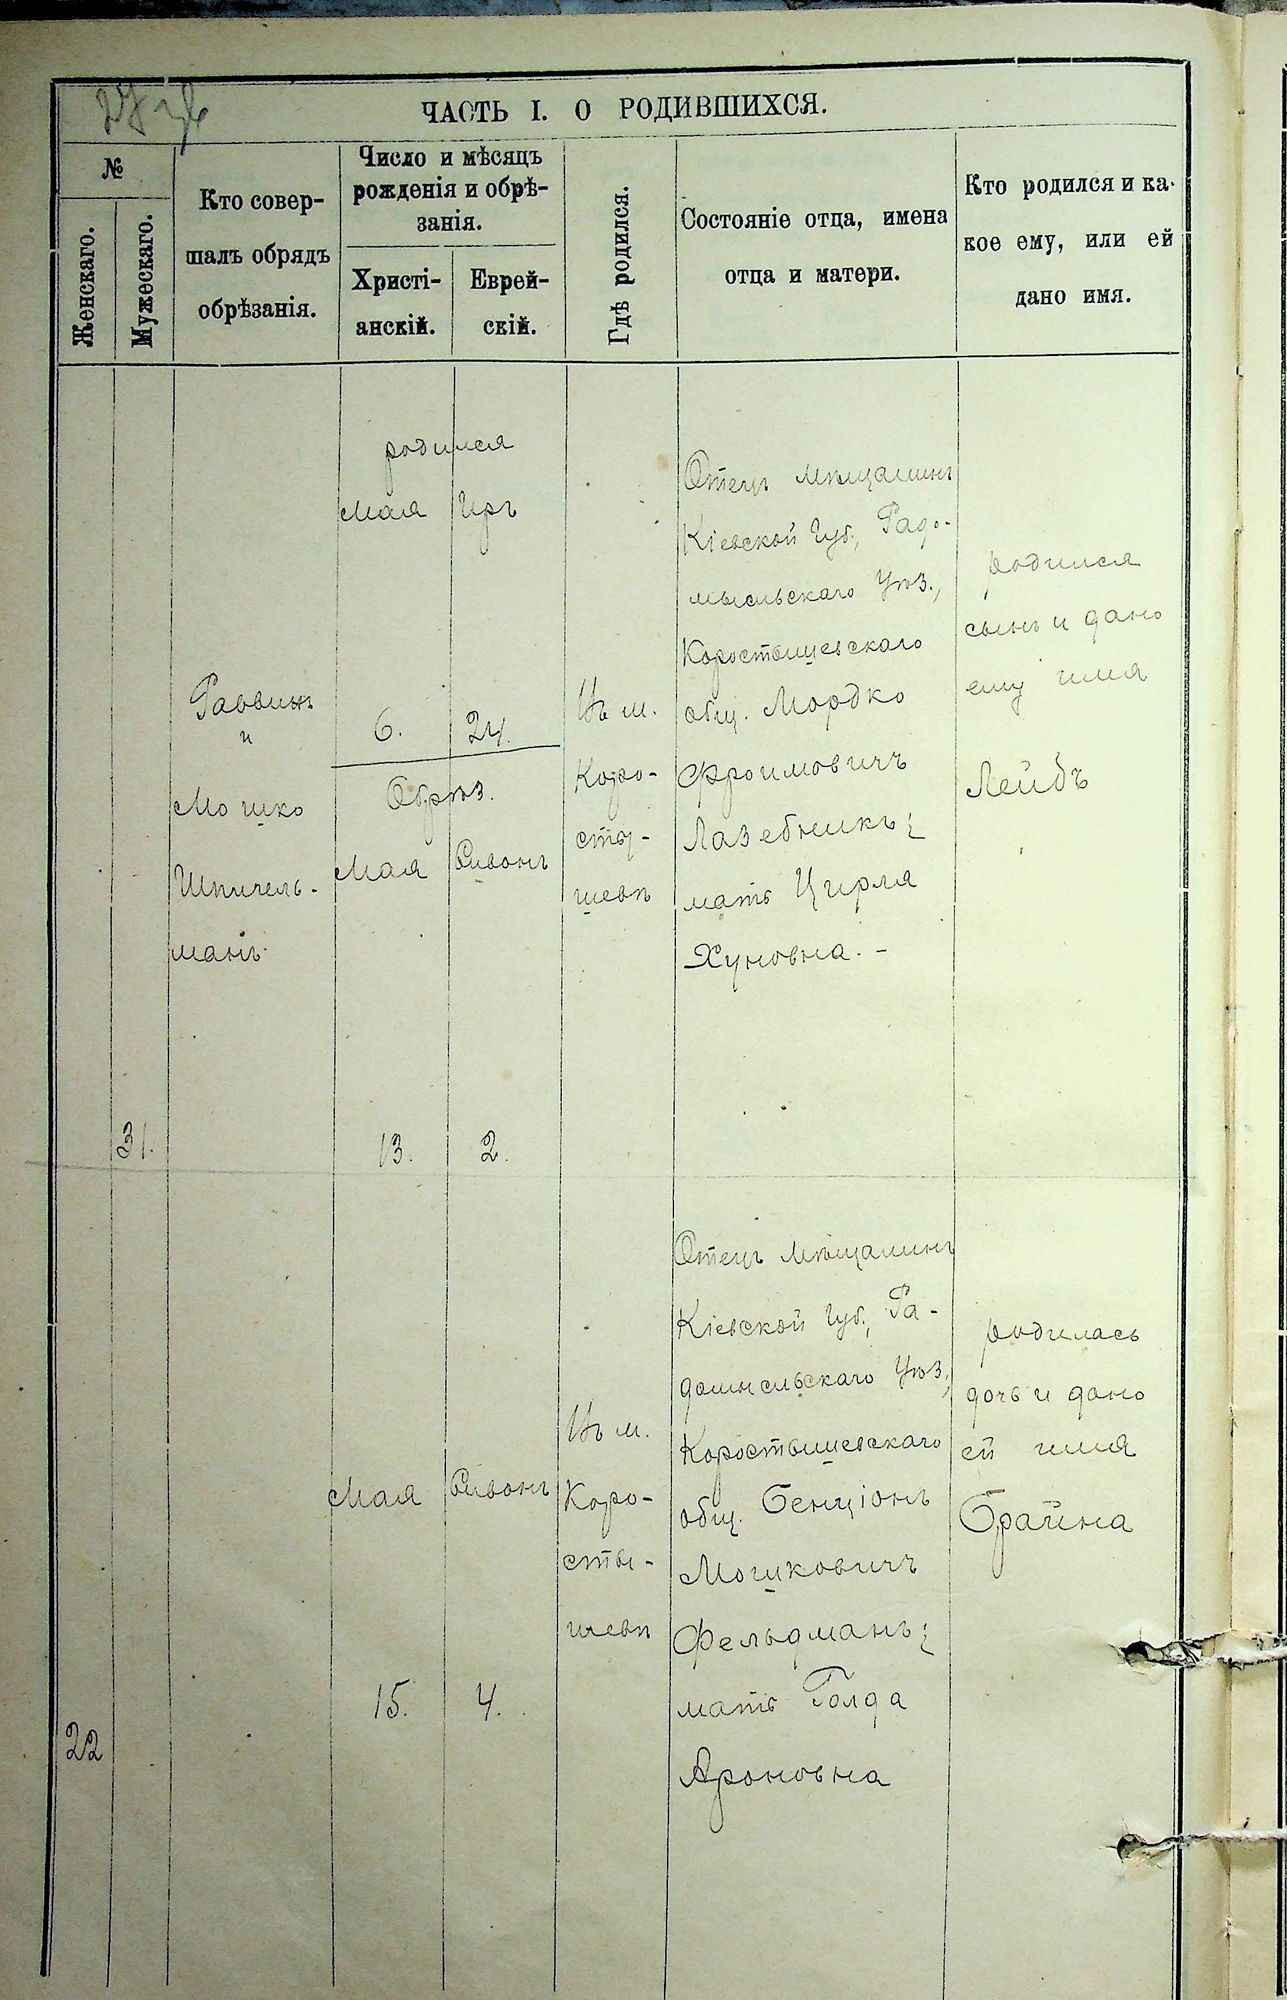 ЧАСТЬ I. О РОДИВШИХСЯ.
№
Женскаго.
Мужескаго.
Кто совер-
шалъ обрядъ
обрѣзанія.
Число и мѣсяцъ
рожденія и обрѣ-
занія.
Христі-
анскій.
Еврей-
скій.
Гдѣ родился.
Состояніе отца, имена
отца и матери.
Кто родился и ка-
кое ему, или ей
дано имя.
31.
Раввинъ
и
Мошко
Шпигель-
манъ
родился
Мая Иръ
6. 24.
Обрѣз.
Мая Сивонъ
13. 2.
Въ м.
Коро-
сты-
шевѣ
Отецъ мѣщанинъ
Кіевской Губ., Радо-
мысльскаго Уѣз.,
Коростышевскаго
общ. Мордко
Фроимовичъ
Лазебникъ;
мать Цирля
Хуновна. -
родился
сынъ и дано
ему имя
Лейбъ
22
Мая Сивонъ
15. 4.
Въ м.
Коро-
сты-
шевѣ
Отецъ мѣщанинъ
Кіевской Губ., Ра-
домысльскаго Уѣз.,
Коростышевскаго
общ. Бенціонъ
Мошковичъ
Фельдманъ;
мать Голда
Ароновна
родилась
дочь и дано
ей имя
Брайна